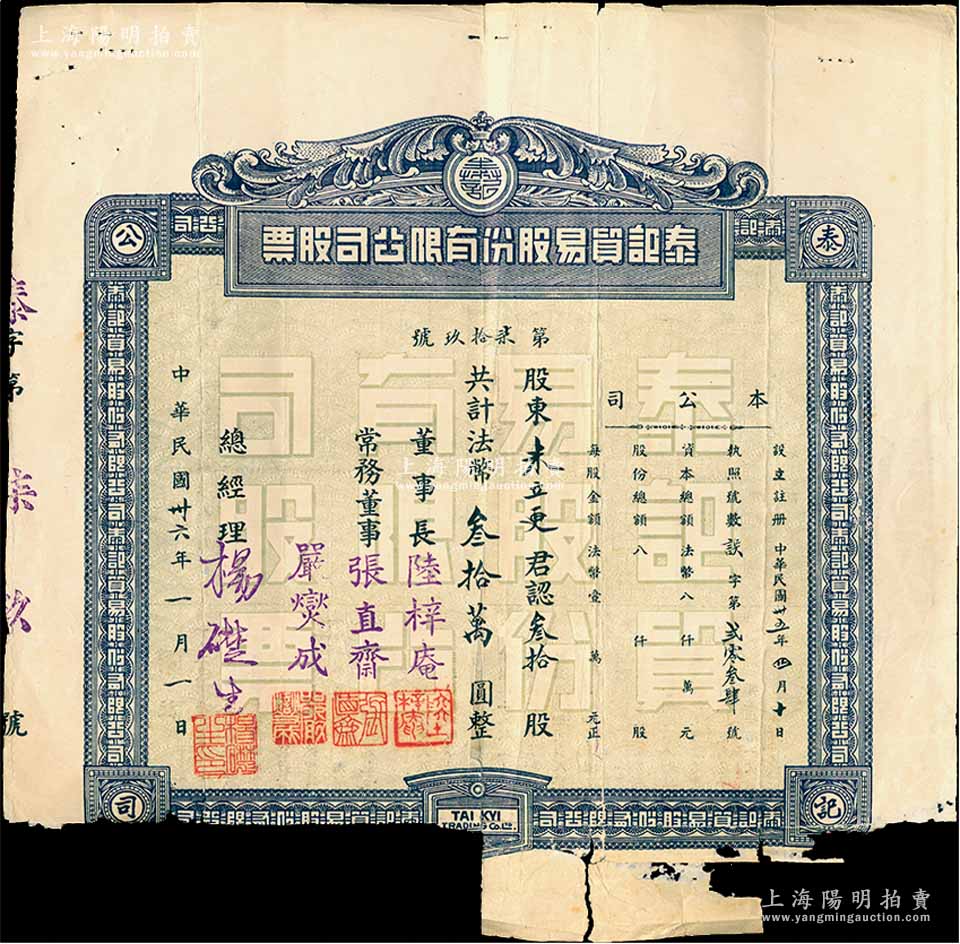 上海陽明拍賣
www.yangmingauction.com
泰記貿易股份有限公司股票
泰
公
記
司
第柒拾玖號
本公司
設立註冊 中華民國卅五年四月十日
執照號數 設字第貳零叁肆號
資本總額法幣八仟萬元
股份總額八仟股
每股金額法幣壹萬元正
股東朱立更君認叁拾股
共計法幣叁拾萬圓整
董事長 陸梓庵
常務董事 張直齋
嚴燮成
總經理 楊礎生
中華民國卅六年一月一日
泰字第 柒 玖 號
泰記貿易股份有限公司
上海陽明拍賣
www.yangmingauction.com
TAI KYI
TRADING CO. LTD.
上海陽明拍賣
www.yangmingauction.com